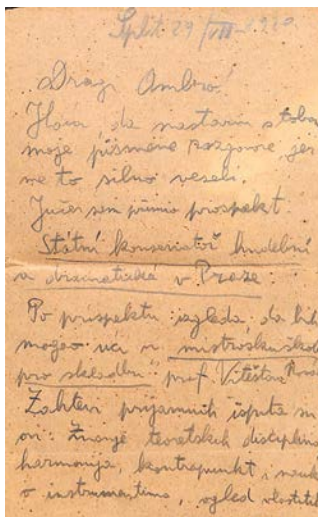 Split 29/VII-1920.
Dragi Ambro!
Hoću da nastavim s tobom
moje pismene razgovore, jer
me to silno veseli.
Jučer sam primio prospekt
Státní konservatoř hudební
a dramatická v Praze:
Po prospektu izgleda, da bih
mogao ući u mistrovsku školu
pro skladbu" prof. Vitězslava
Zahtevi prijamnih ispita su
ovi: Znanje teoretskih disciplina
harmonija, kontrapunkt i nauk
o instrumentima, ogled vlastitih